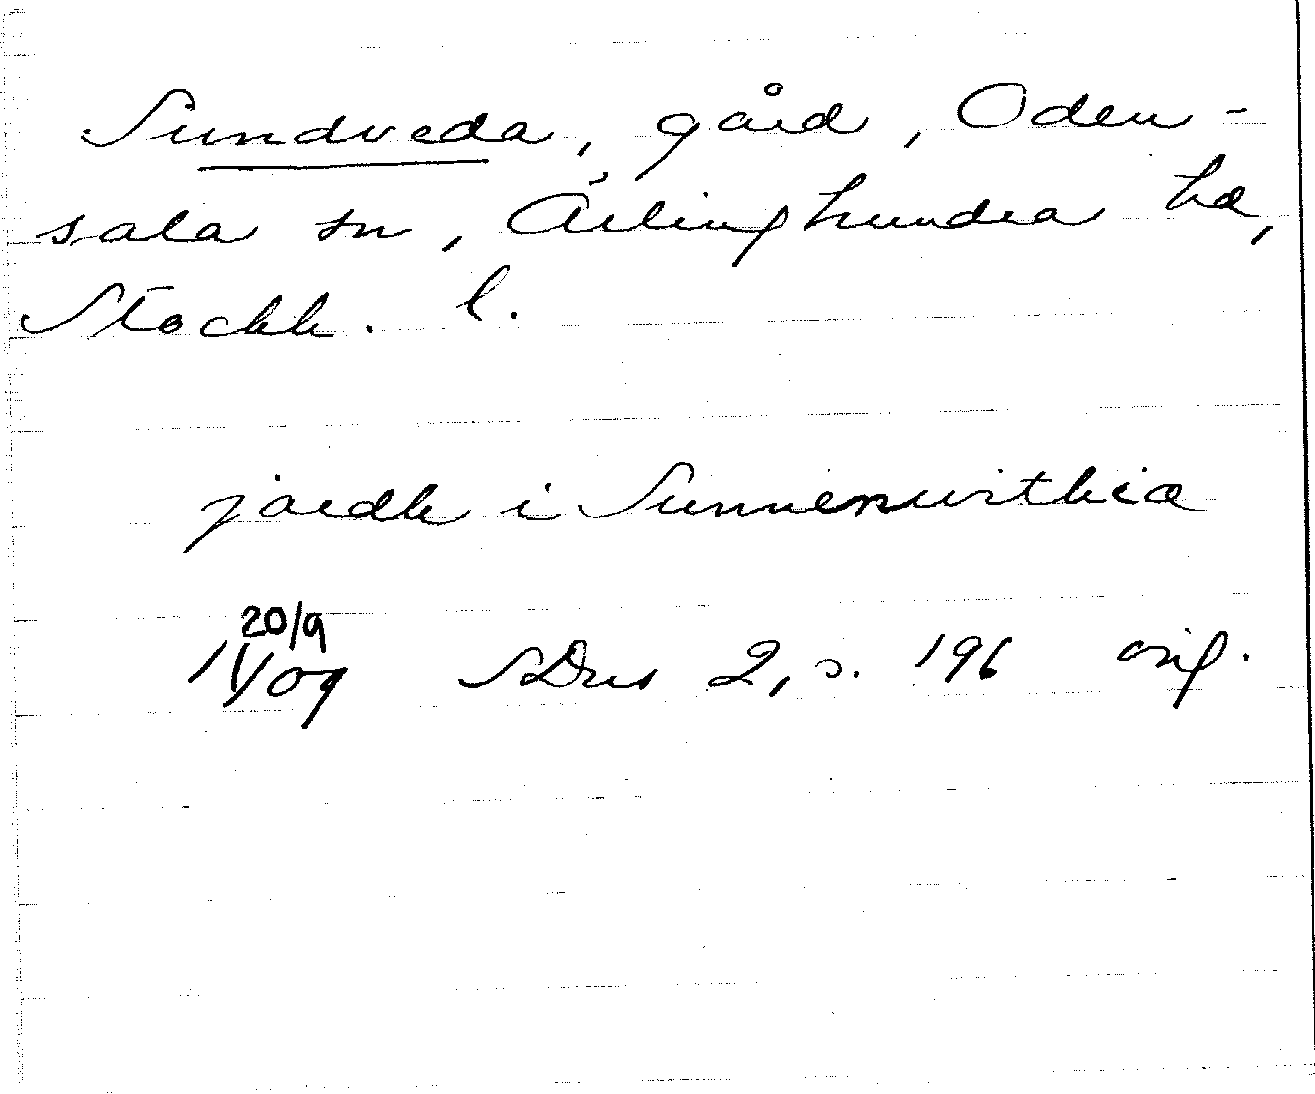 Sundveda, gård, Oden-
sala sn, Ärlinghundra hd,
Stockh. l.
jordh i Sunnenwithia
20/9
1409 SDns 2, s. 196 orig.